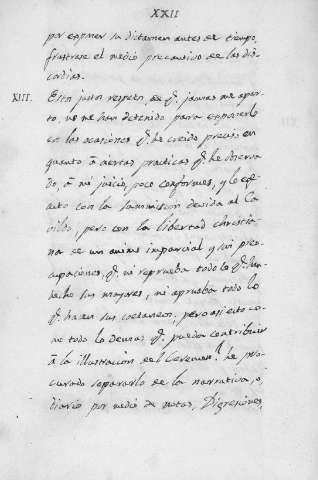 XXII
por exponer su dictamen antes de tiempo,
frustrase el medio precautivo de las dis-
cordias.
XIII. Este justo respeto, de q. jamas me apar-
to, no me han detenido para exponerlo
en las ocasiones q. he creido preciso en
quanto à ciertas practicas q. he observa-
do, à mi juicio, poco conformes, y lo
con la sumission devida al Ca-
vildo, pero con la libertad christia-
na de un animo imparcial y sin preo-
cupaciones, q. ni reprueba todo lo q. han
hecho sus mayores, ni aprueba todo lo
q. hacen sus coetaneos, pero assi esto co-
mo todo lo demas q. pueda contribuir
à la illustracion del Ceremon.l he pro-
curado separarlo de la narrativa, o
diario por medio de notas, Digresiones,